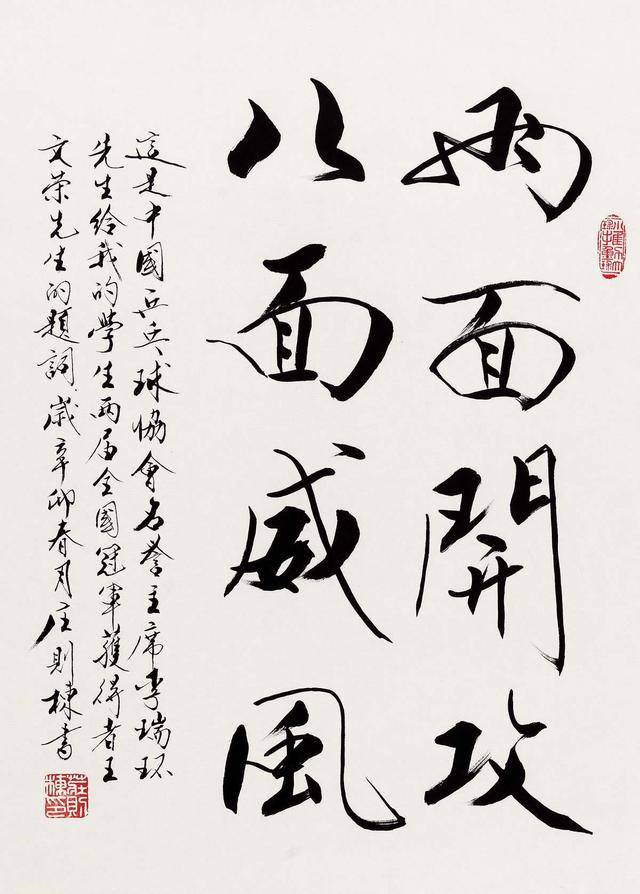 兩面開攻
八面威風
這是中國乒乓球協會名譽主席李瑞环
先生给我的學生两届全國冠軍獲得者王
文荣先生的題詞．歲辛卯春月庄則棟書
莊則棟印